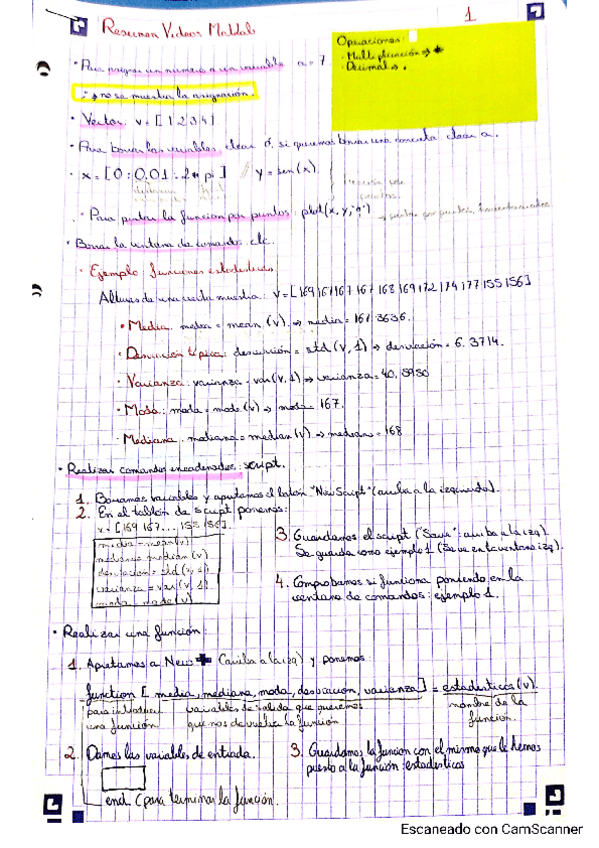 1
Resumen Videos Matlab
Operaciones:
· Multiplicación → *
· Decimal → .
· Para asignar un número a una variable a = 7
; → no se muestra la asignación.
· Vector: v = [1 2 3 4]
· Para borrar las variables: clear ó, si queremos borrar una concreta clear a.
· x = [0 : 0,01 : 2* pi] // y = sen(x)
· Para pintar la función por puntos: plot(x, y,
· Borrar la ventana de comandos: clc.
· Ejemplo funciones estadísticas
Alturas de una cierta muestra: v = [169 161 167 167 168 169 172 174 177 155 156]
· Media: media = mean (v). → media =
· Desviación típica: desviación = std (v, 1) → desviación = 6.3714.
· Varianza: varianza = var(v, 1) → varianza = 40,5950
· Moda: moda = mode (v) → moda = 167.
· Mediana: mediana = median (v) → mediana = 168
· Realizar comandos encadenados: script.
1. Borramos variables y apretamos el botón "New Script" (arriba a la izquierda).
2. En el tablón de script ponemos:
v = [169 167 ... 155 156].
media = mean(v)
mediana = median (v)
desviacion = std (v, 1)
varianza = var (v, 1)
moda = mode (v)
3. Guardamos el script ("Save": arriba a la izq)
Se guarda como ejemplo 1 (Se ve en la ventana izq).
4. Comprobamos si funciona poniendo en la
ventana de comandos: ejemplo 1.
· Realizar una función:
1. Apretamos a New + (arriba a la izq) y ponemos:
function [media, mediana, moda, desviacion, varianza] = estadisticas (v).
para introducir una función
variables de salida que queremos que nos devuelva la función
nombre de la función.
2. Damos las variables de entrada.
3. Guardamos la función con el mismo que le hemos
puesto a la función: estadisticas
end (para terminar la función.
Escaneado con CamScanner